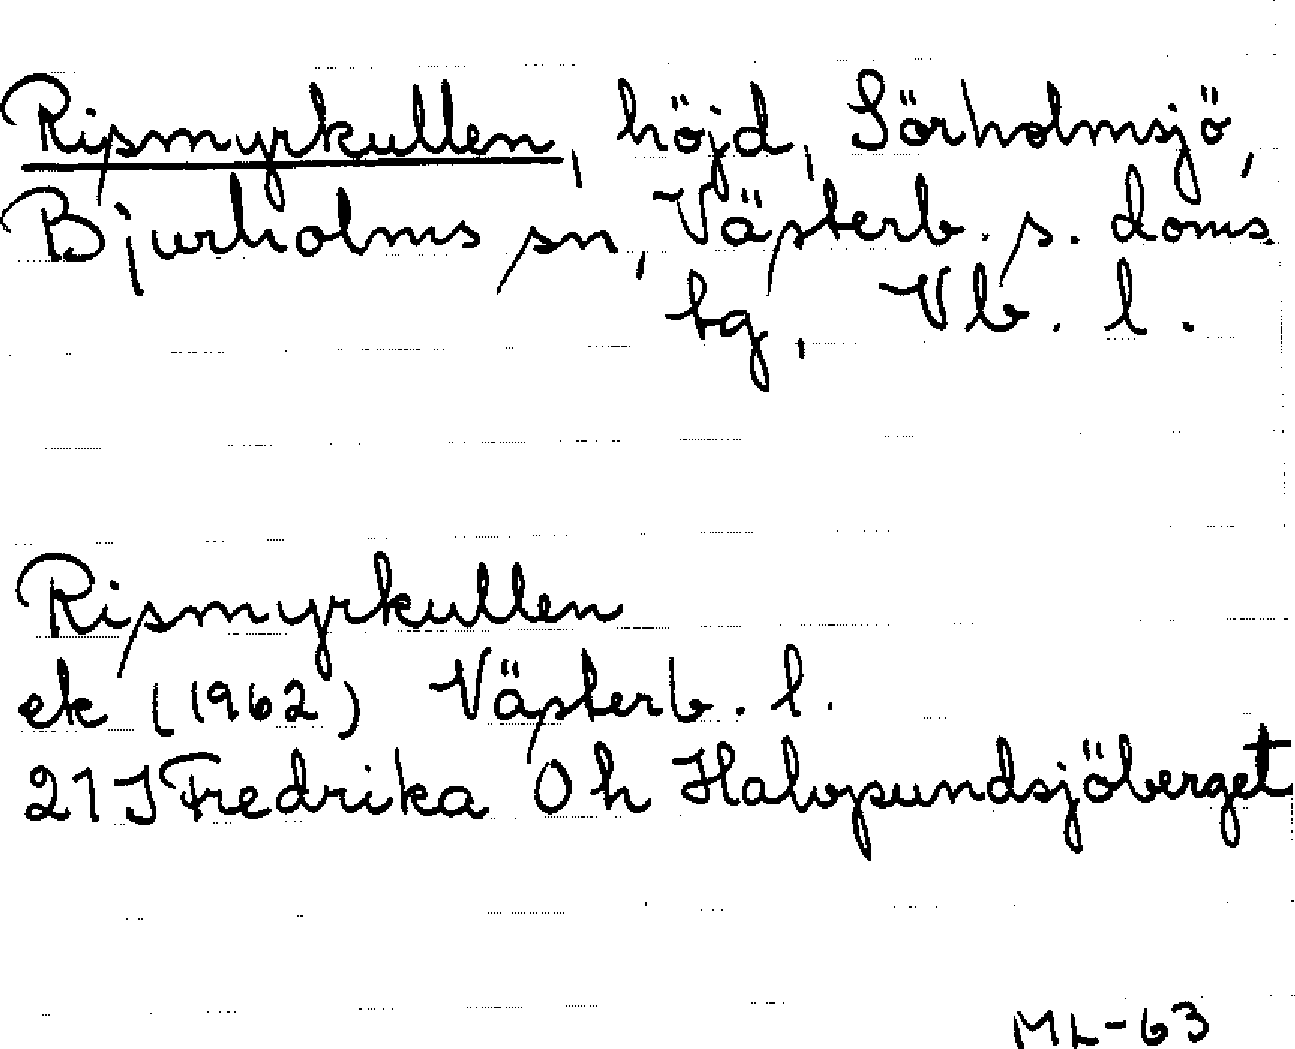 Rismyrkullen, höjd, Sörholmsjö,
Bjurholms sn, Västerb. s. doms.
tg, Vb. l.
Rismyrkullen
ek (1962) Västerb. l.
21J Fredrika 0h Halvpundsjöberget
ML-63